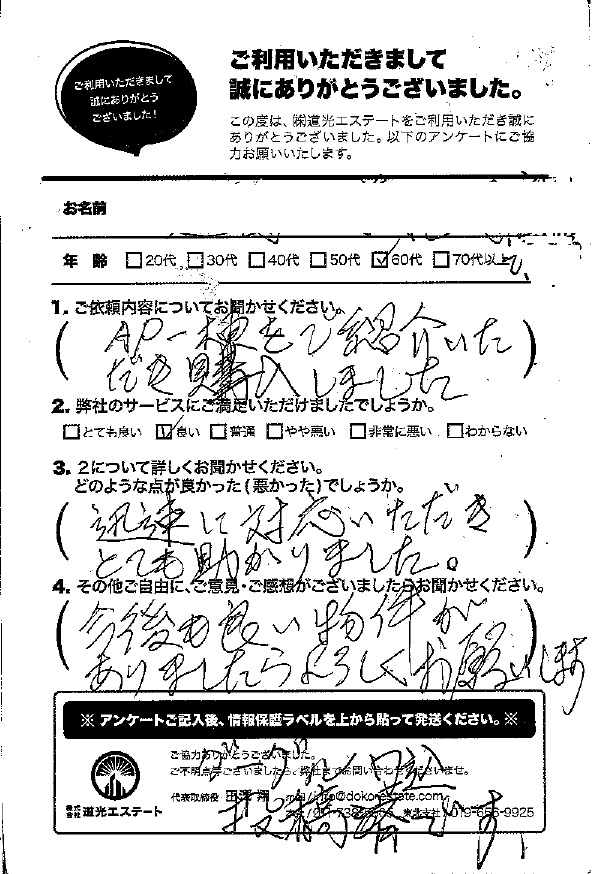 ご利用いただきまして
誠にありがとう
ございました！
ご利用いただきまして
誠にありがとうございました。
この度は、㈱道光エステートをご利用いただき誠に
ありがとうございました。以下のアンケートにご協
力お願いいたします。
お名前
年 齢 □20代 □30代 □40代 □50代 ☑60代 □70代以上
1. ご依頼内容についてお聞かせください。
(AP一棟をご紹介いた
だき購入しました)
2. 弊社のサービスにご満足いただけましたでしょうか。
□とても良い ☑良い □普通 □やや悪い □非常に悪い □わからない
3. 2について詳しくお聞かせください。
どのような点が良かった（悪かった）でしょうか。
(迅速に対応いただき
とても助かりました。)
4. その他ご自由に、ご意見・ご感想がございましたらお聞かせください。
(今後も良い物件が
ありましたらよろしくお願いします)
※ アンケートご記入後、情報保護ラベルを上から貼って発送ください。※
ご協力ありがとうございました。
ご不明点等ございましたら弊社までお問い合わせくださいませ。
代表取締役
株式会社 道光エステート
019-656-9925